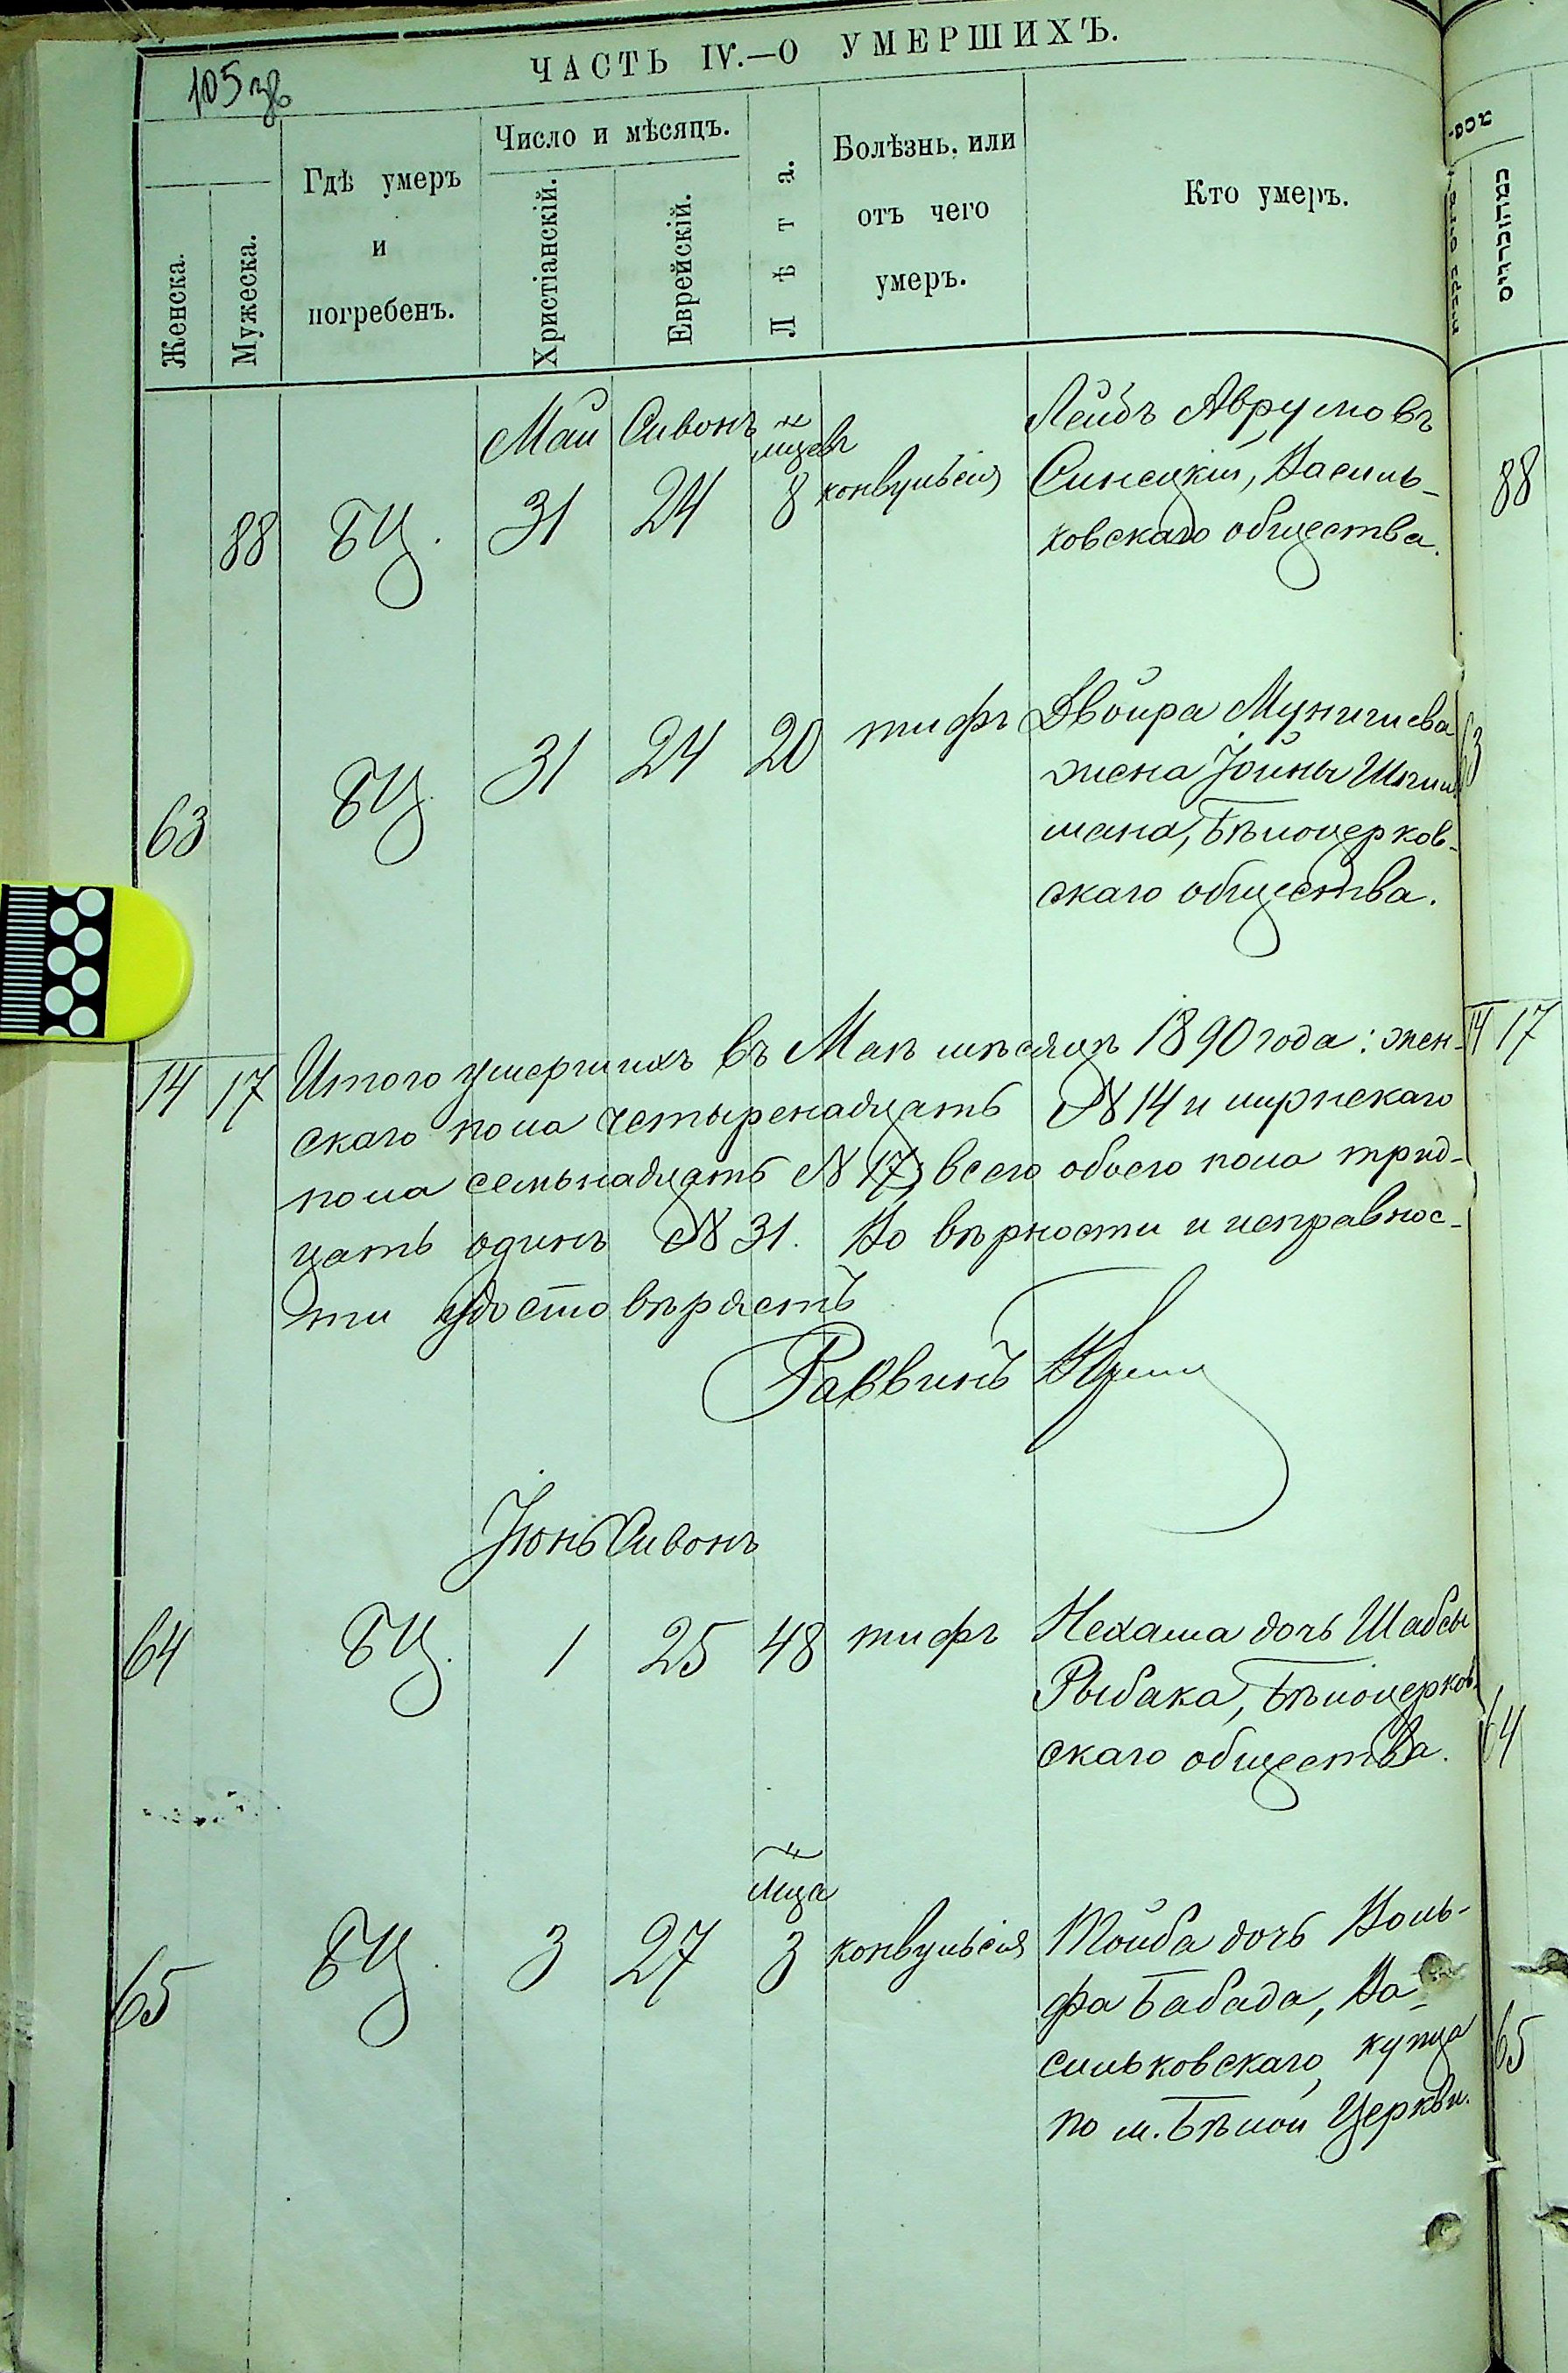 105 зв
ЧАСТЬ IV.—О УМЕРШИХЪ.
Женска.
Мужеска.
Гдѣ умеръ
и
погребенъ.
Число и мѣсяцъ.
Христіанскій.
Еврейскій.
Лѣта.
Болѣзнь, или
отъ чего
умеръ.
Кто умеръ.
Май Сивонъ мцевъ
88 БЦ. 31 24 8 конвульсія
Лейбъ Аврумовъ
Синецкій, Василь-
ковскаго общества.
88
63 БЦ. 31 24 20 тифъ
Двойра
жена Іойны
мана, Бѣлоцерков-
скаго общества.
63
14 17 Итого умершихъ въ Маѣ мѣсяцѣ 1890 года: жен- 14 17
скаго пола четыренадцать № 14 и мужескаго
пола семьнадцать № 17, всего обоего пола трид-
цать одинъ № 31. Во вѣрности и исправнос-
ти удостовѣряетъ
Раввинъ
Іюнь Сивонъ
64 БЦ. 1 25 48 тифъ
Нехама дочь Шабсы
Рыбака, Бѣлоцерков-
скаго общества.
64
мца
65 БЦ. 3 27 3 конвульсія
Тойба дочь Воль-
фа Бабада, Ва-
сильковскаго купца
по м. Бѣлой Церкви.
65